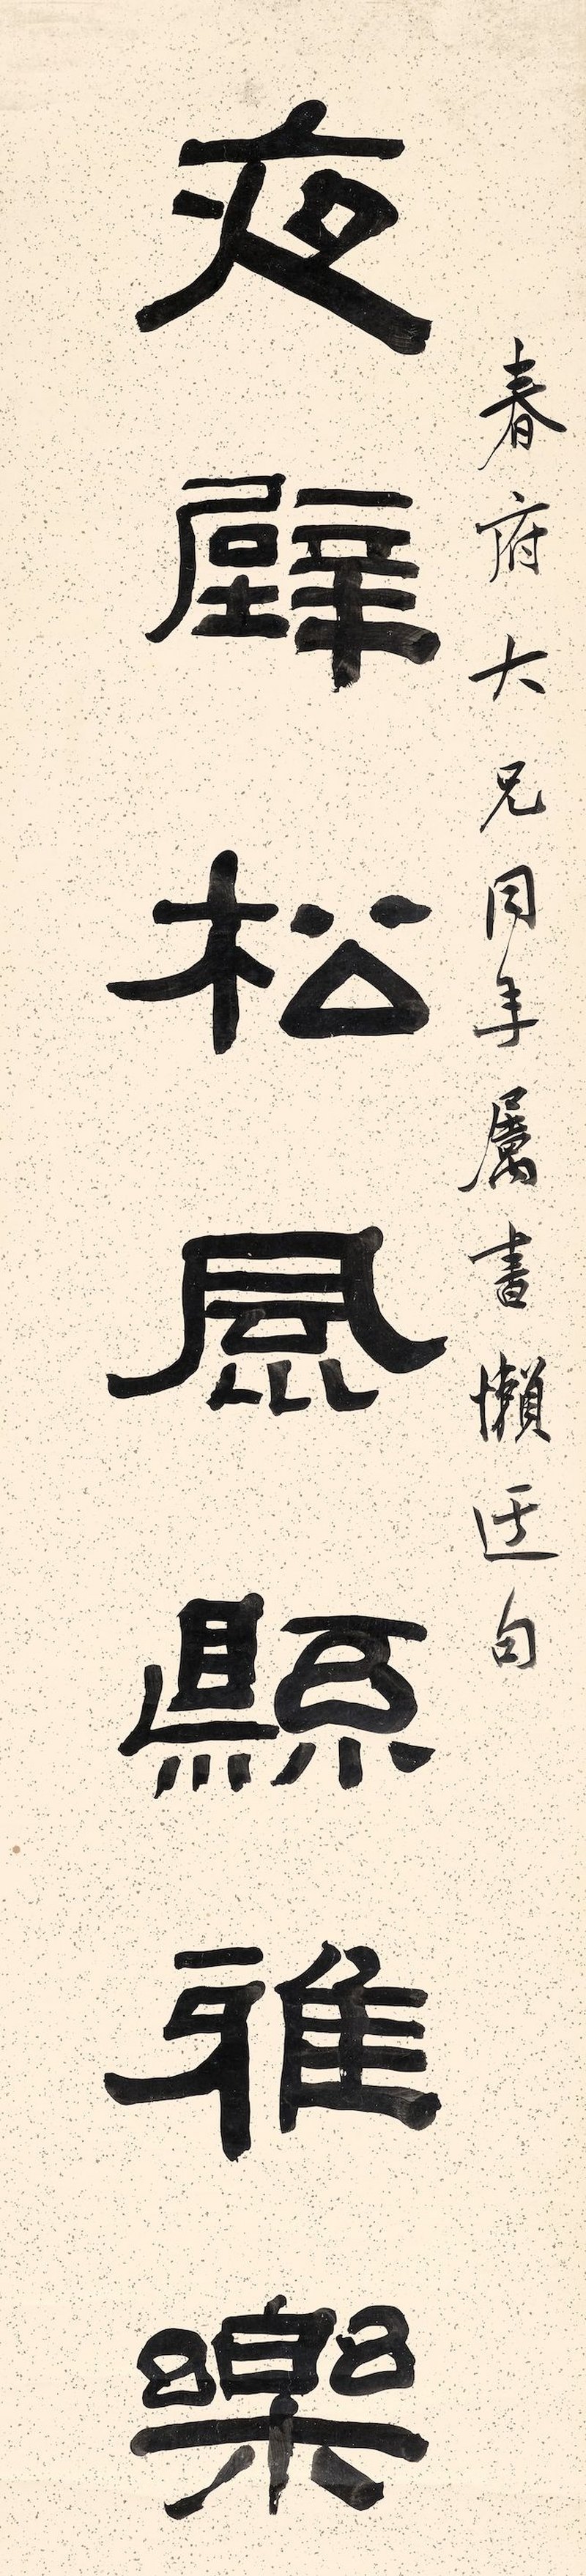 春府大兄同年屬書懶迂句
夜壁松風縣雅樂